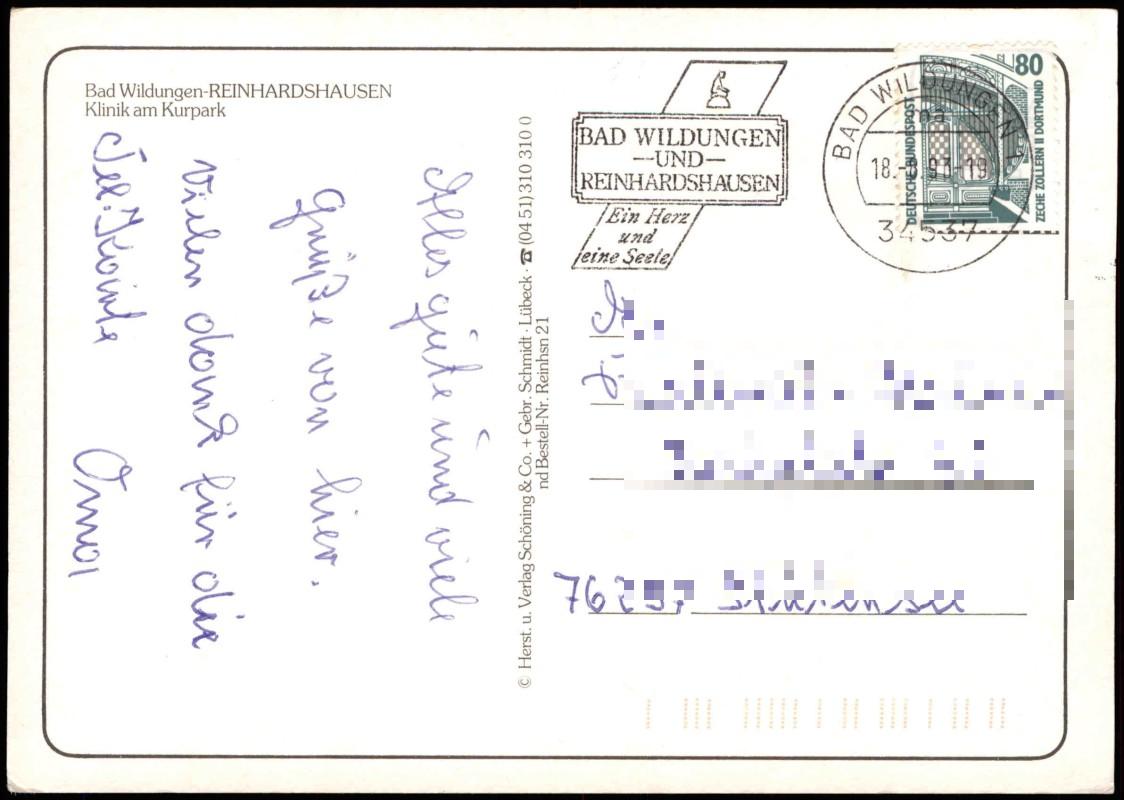 Bad Wildungen-REINHARDSHAUSEN
Klinik am Kurpark
Alles gute und viele
Grüße von hier.
Vielen dank für die
Tel. Karte
Oma
© Herst. u. Verlag Schöning & Co. + Gebr. Schmidt · Lübeck · ☎ (04 51) 310 310 0
nd Bestell-Nr. Reinhsn 21
BAD WILDUNGEN
—UND—
REINHARDSHAUSEN
Ein Herz
und
eine Seele
BAD WILDUNGEN 1
ma
18.-8.93-19
34537
80
DEUTSCHE BUNDESPOST
ZECHE ZOLLERN II DORTMUND